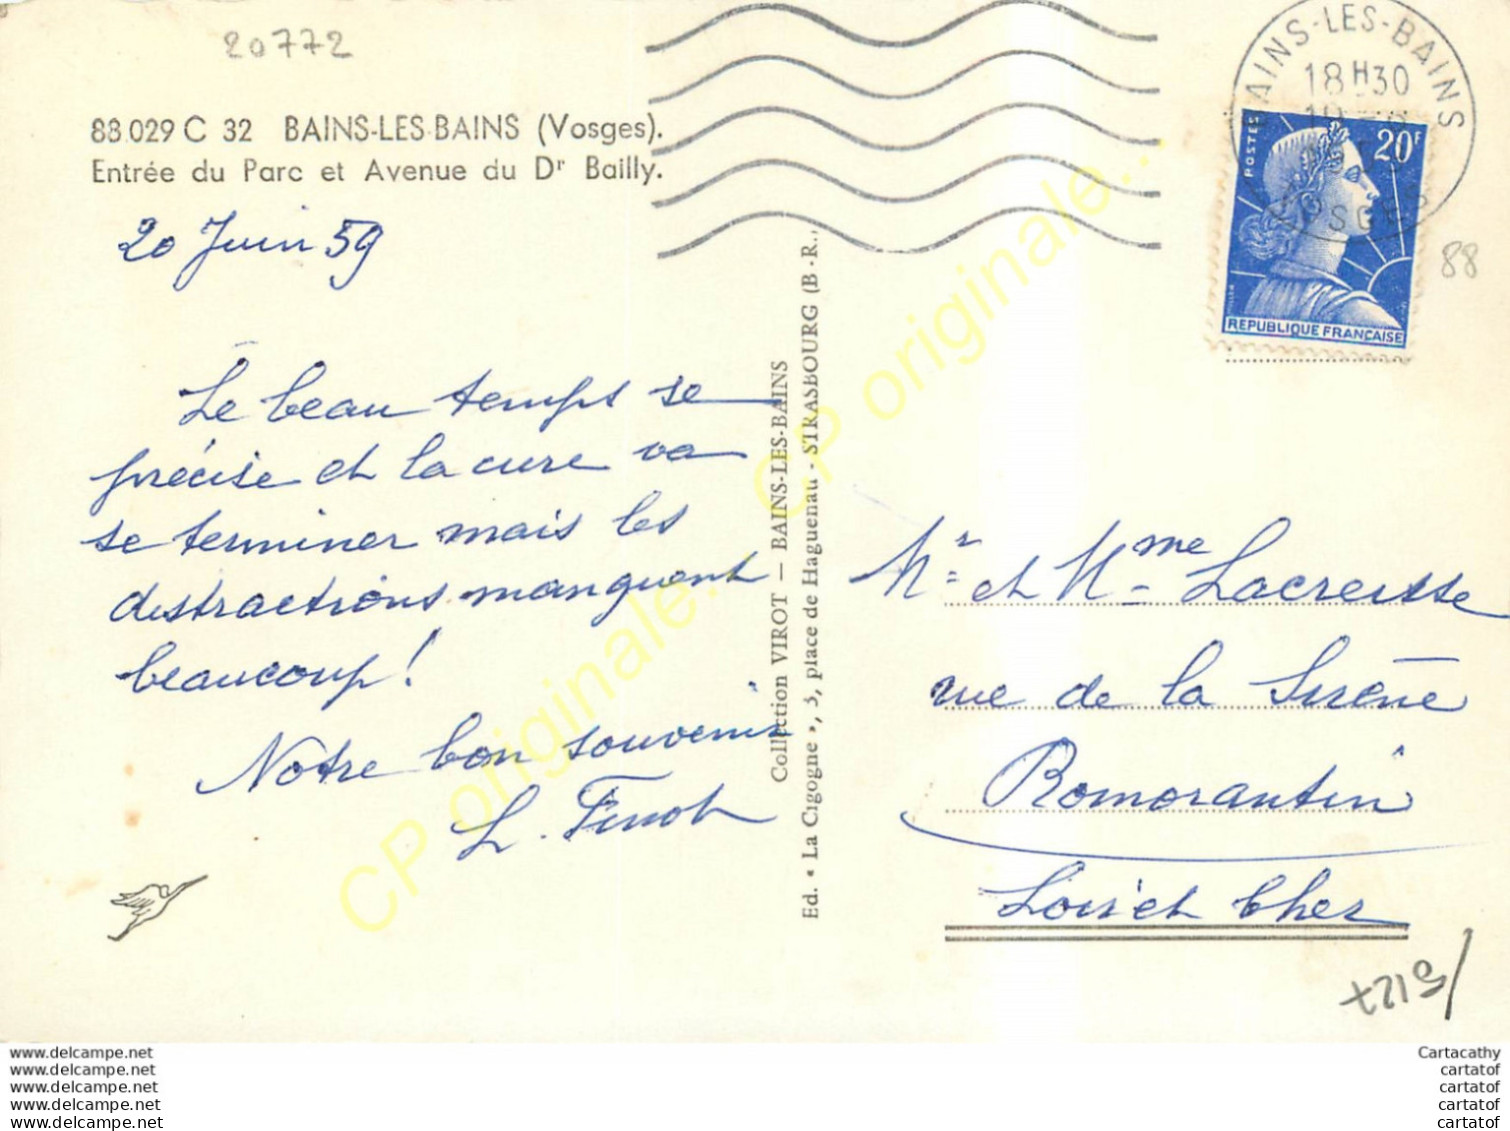 20772
88.029 C 32 BAINS-LES-BAINS (Vosges).
Entrée du Parc et Avenue du Dr Bailly.
20 Juin 59
Le beau temps se
précise et la cure va
se terminer mais les
distractions manquent
beaucoup!
Notre bon souvenir
L.
Collection VIROT — BAINS-LES-BAINS
Ed. « La Cigogne », 3, place de Haguenau - STRASBOURG (B.-R.,
CP originale...
CP originale...
BAINS-LES-BAINS
18H30
VOSGES
POSTES
20F
REPUBLIQUE FRANÇAISE
88
Mr et Mme Lacreusse
rue de la Sirène
Romorantin
Loir et Cher
www.delcampe.net
www.delcampe.net
www.delcampe.net
www.delcampe.net
www.delcampe.net
Cartacathy
cartatof
cartatof
cartatof
cartatof